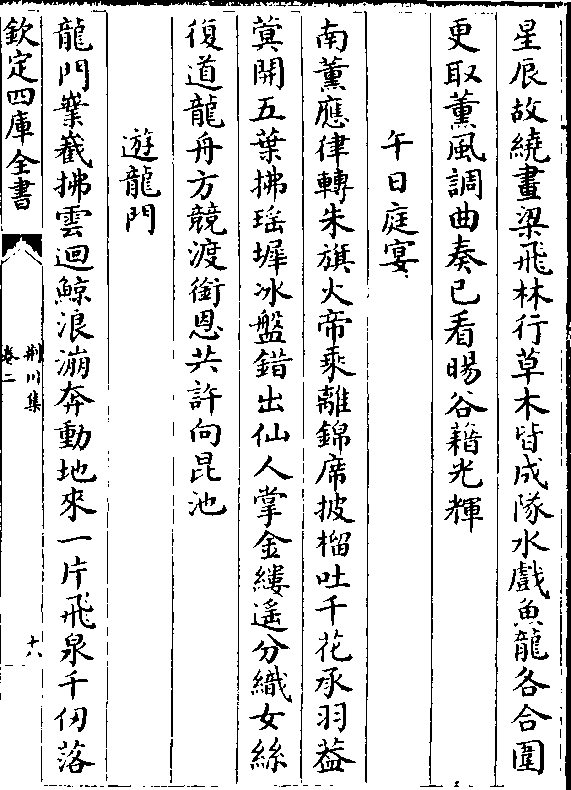 星辰故繞畫梁飛林行草木皆成隊水戲魚龍各合圍
更取薰風調曲奏已看暘谷藉光輝
午日庭宴
南薰應律轉朱旗火帝乘離錦席披榴吐千花承羽葢
蓂開五葉拂瑶墀冰盤錯出仙人掌金縷遥分織女絲
復道龍舟方競渡銜恩共許向昆池
遊龍門
龍門嶪嶻拂雲迴鲸浪漰奔動地來一片飛泉千仞落
欽定四庫全書
荆川集
卷二
十六